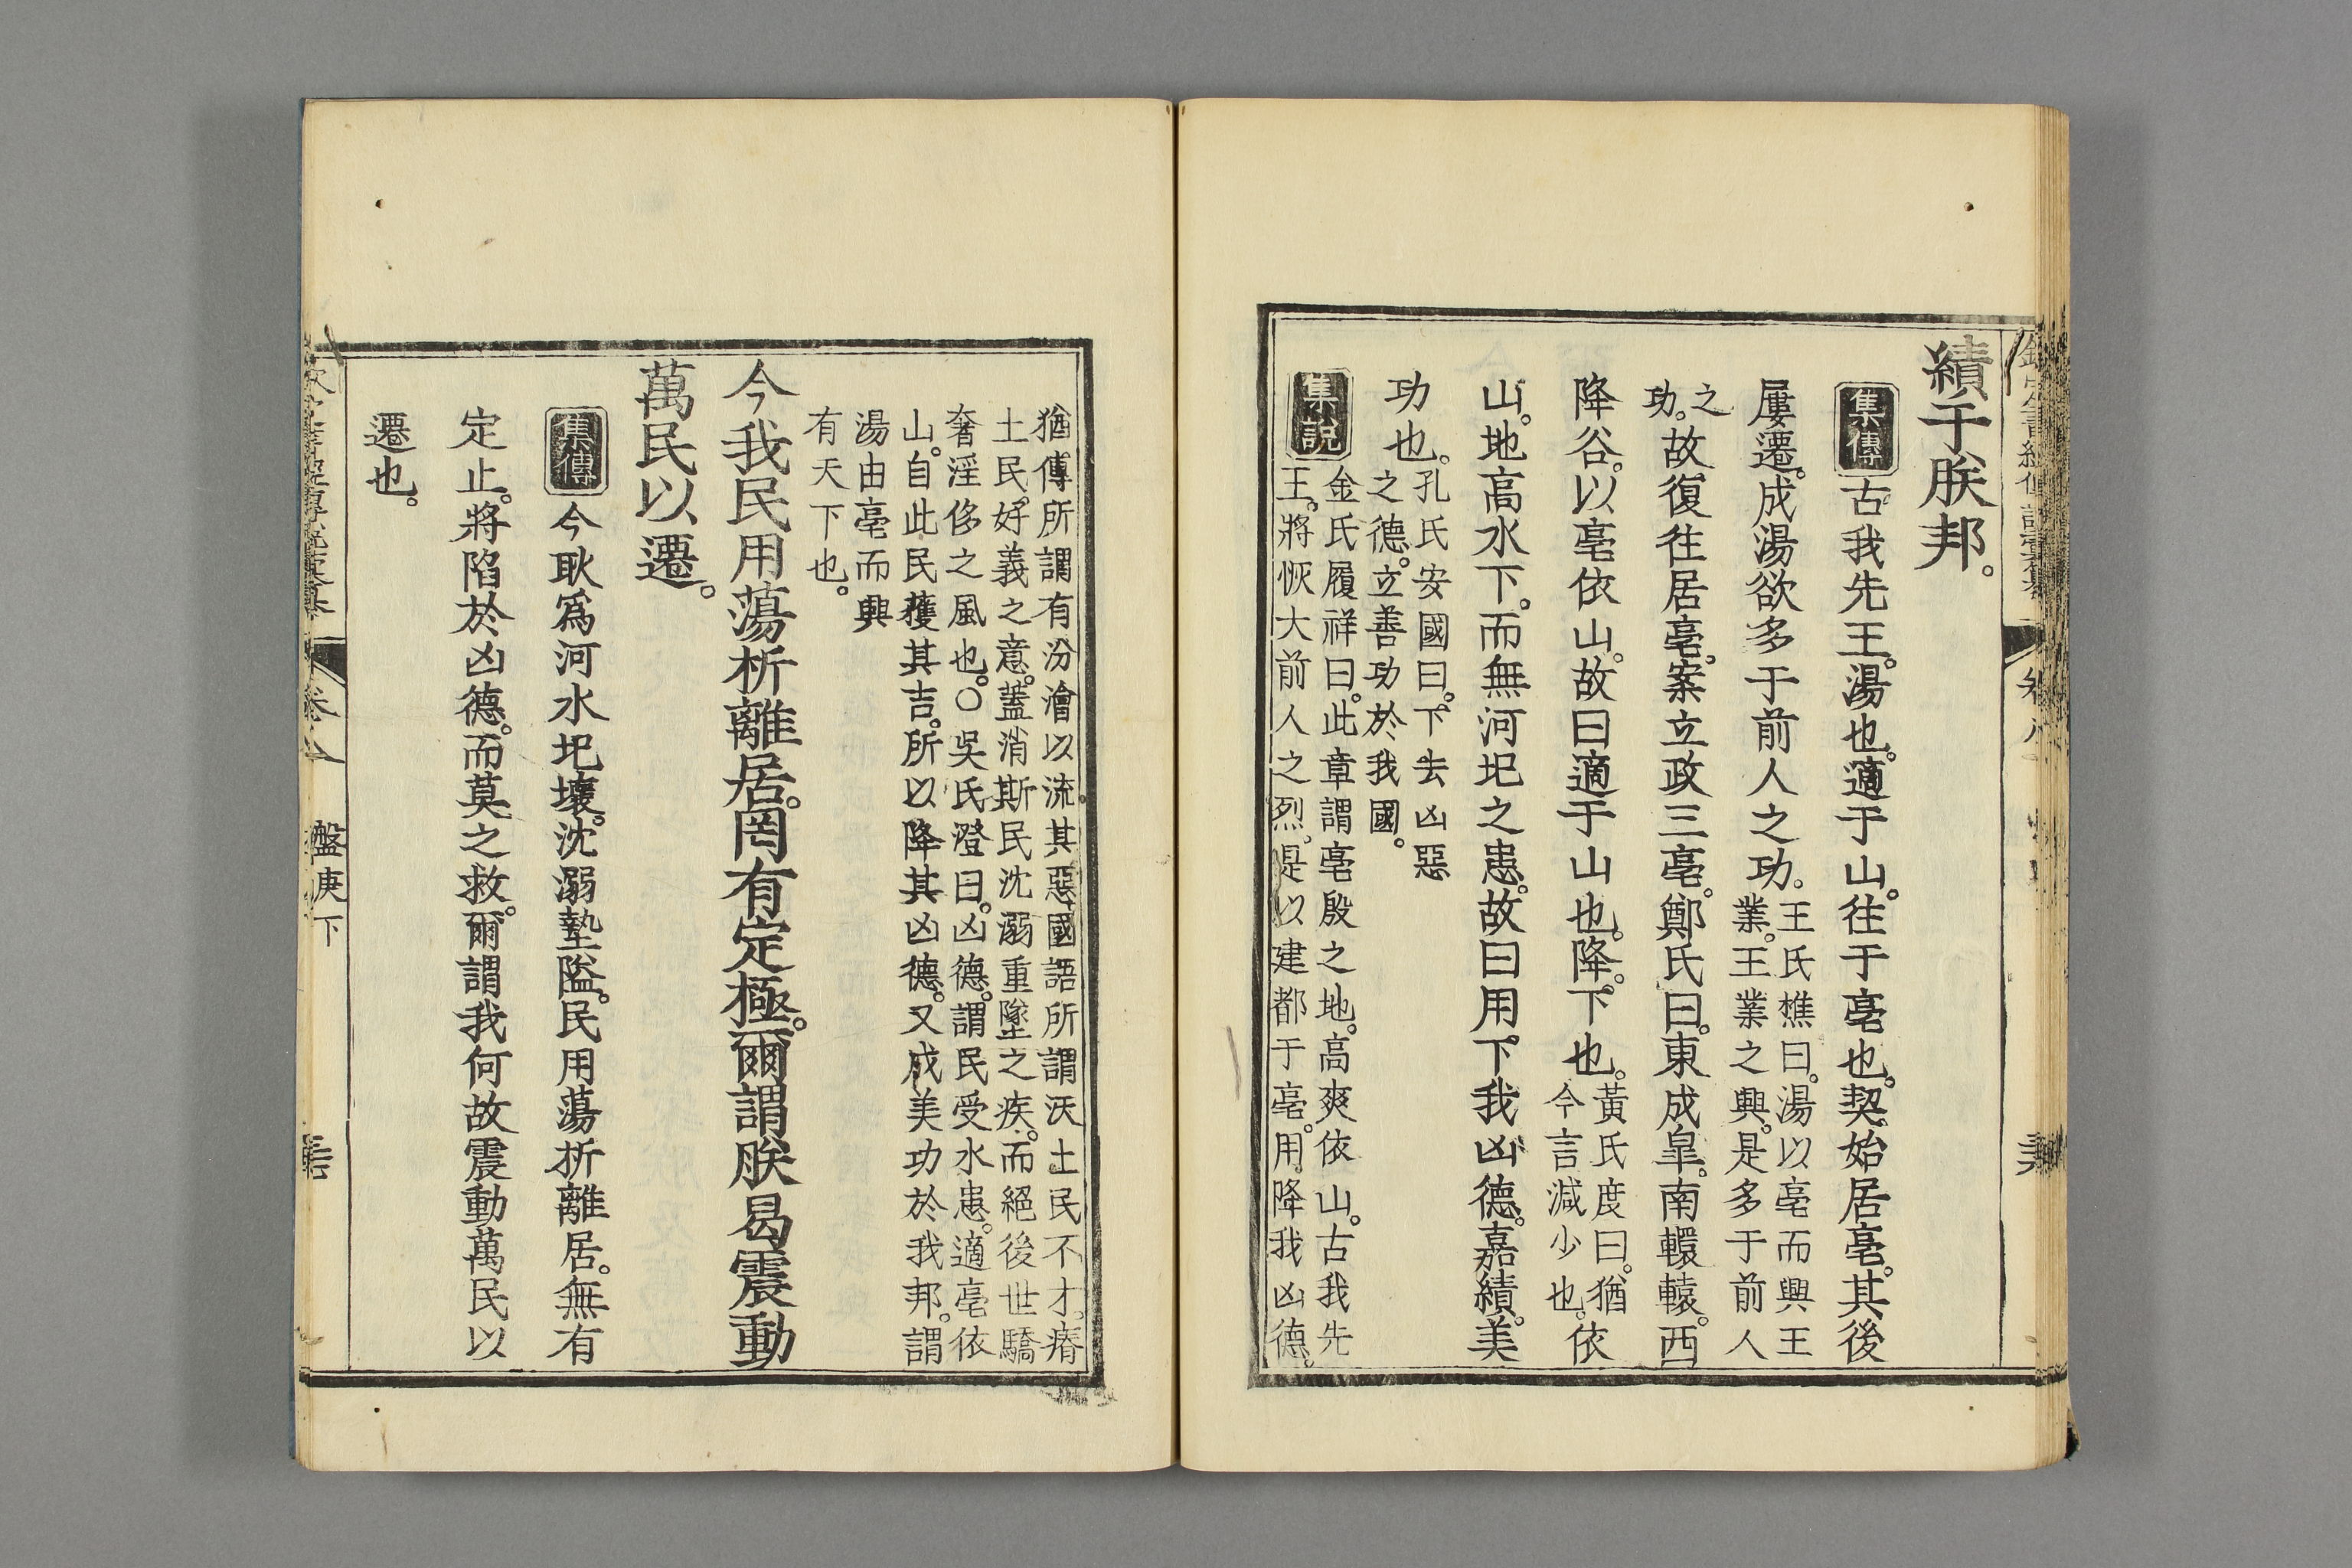 績于朕邦。
集傳 古我先王。湯也。適于山。往于亳也。契始居亳。其後
屢遷。成湯欲多于前人之功。王氏樵曰。湯以亳而興王
業。王業之興。是多于前人
之
功。故復往居亳。案立政三亳。鄭氏曰。東成皐。南轘轅。西
降谷。以亳依山。故曰適于山也。降。下也。黃氏度曰。猶
今言減少也。依
山。地高水下。而無河圯之患。故曰用下我凶德。嘉績。美
功也。孔氏安國曰。下去凶惡
之德。立善功於我國。
集說 金氏履祥曰。此章謂亳殷之地。高爽依山。古我先
王。將恢大前人之烈。是以建都于亳。用降我凶德。
猶傳所謂有汾澮以流其惡。國語所謂沃土民不才。瘠
土民好義之意。蓋消斯民沈溺重墜之疾。而絕後世驕
奢淫侈之風也。○吳氏澄曰。凶德。謂民受水患。適亳依
山。自此民獲其吉。所以降其凶德。又成美功於我邦。謂
湯由亳而興
有天下也。
今我民用蕩析離居。罔有定極。爾謂朕曷震動
萬民以遷。
集傳 今耿爲河水圯壞。沈溺墊隘。民用蕩折離居。無有
定止。將陷於凶德。而莫之救。爾謂我何故震動萬民以
遷也。
卷八
盤庚下